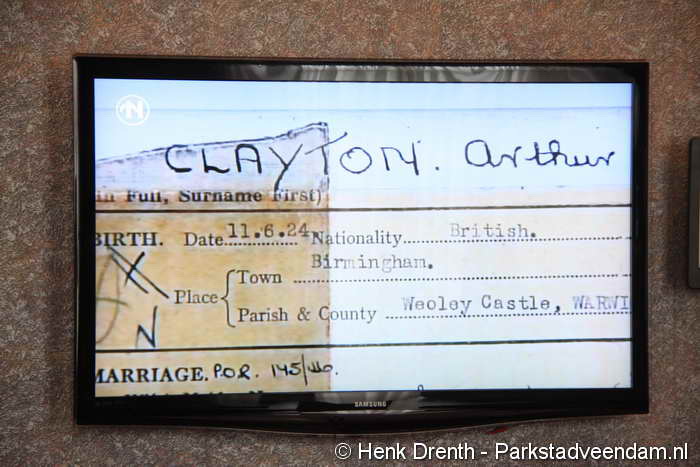 N
CLAYTON. Arthur
in Full, Surname First)
BIRTH. Date 11.6.24. Nationality British.
Birmingham.
Place { Town
Parish & County Weoley Castle, WARWI
N
MARRIAGE. P.O.R. 145/46.
SAMSUNG
© Henk Drenth - Parkstadveendam.nl